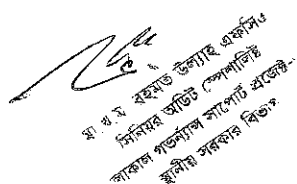 মা. খ. ম রহমত উল্যাহ এফসিএ
সিনিয়র অডিট স্পেশালিষ্ট
লোকাল গভর্ন্যান্স সাপোর্ট প্রজেক্ট-
স্থানীয় সরকার বিভাগ